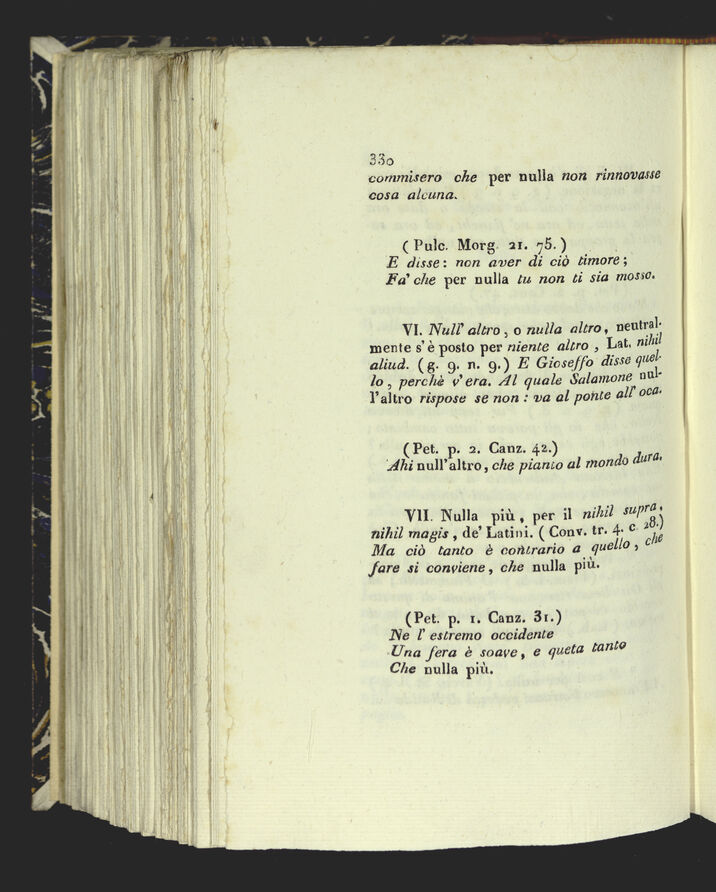 330
commisero che per nulla non rinnovasse
cosa alcuna.
( Pulc. Morg. 21. 75. )
E disse: non aver di ciò timore ;
Fa' che per nulla tu non ti sia mosso.
VI. Null' altro , o nulla altro , neutral-
mente s' è posto per niente altro , Lat. nihil
aliud. ( g. 9. n. 9. ) E Gioseffo disse quel-
lo , perchè v' era. Al quale Salamone nul-
l'altro rispose se non : va al ponte all' oca.
( Pet. p. 2. Canz. 42. )
Ahi null'altro , che pianto al mondo dura.
VII. Nulla più , per il nihil supra ,
nihil magis , de' Latini. ( Conv. tr. 4. c. 28. )
Ma ciò tanto è contrario a quello , che
fare si conviene , che nulla più.
( Pet. p. 1. Canz. 31. )
Ne l' estremo occidente
Una fera è soave , e queta tanto
Che nulla più.